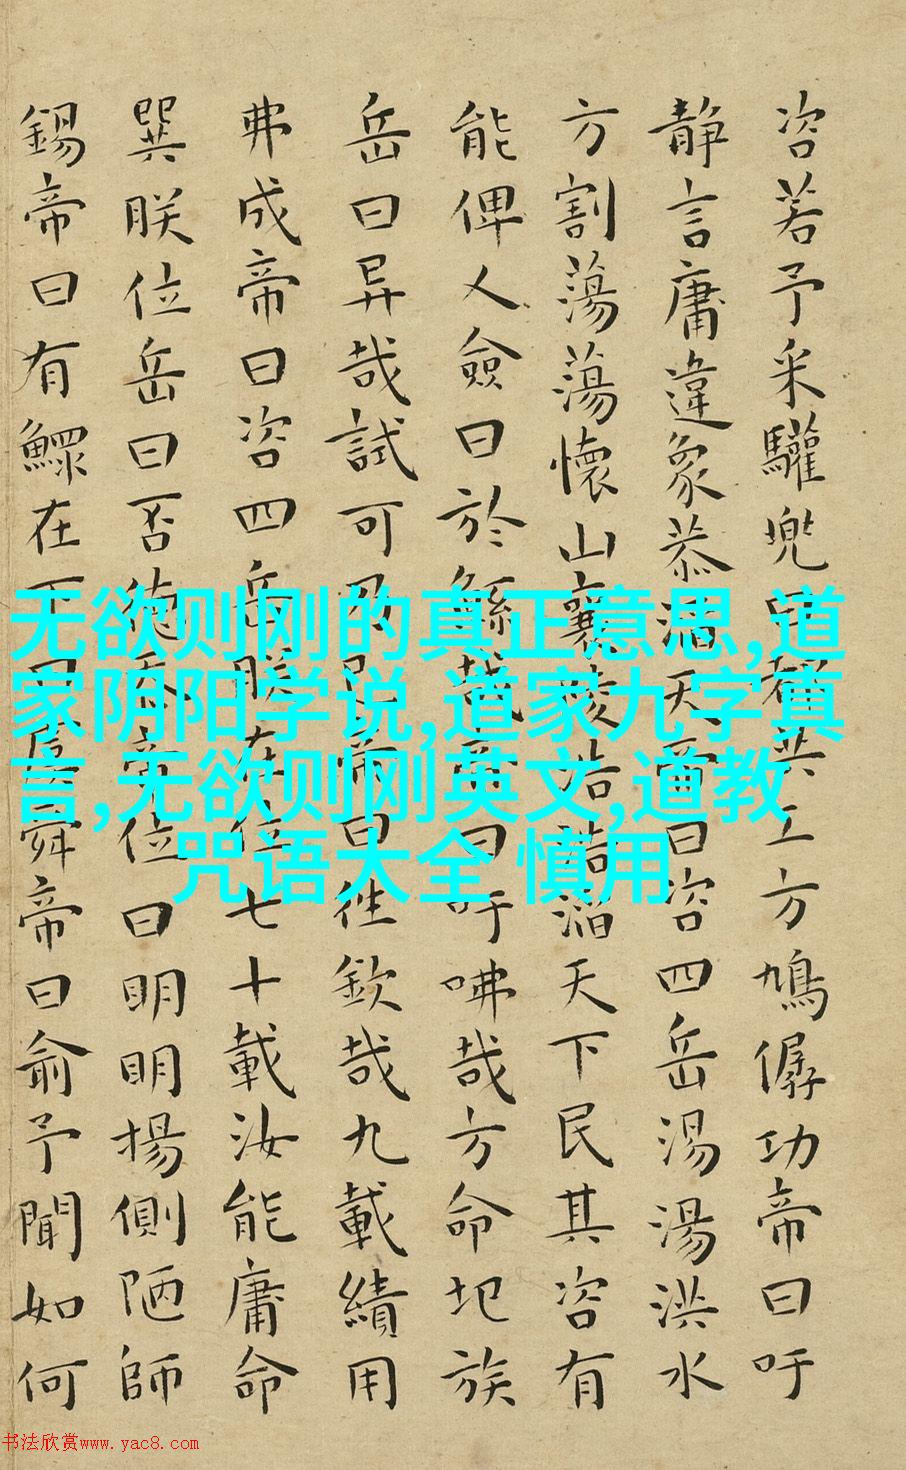 咨若予采驩兜曰都共工方鳩僝功帝曰吁
靜言庸違象恭滔天帝曰咨四岳湯湯洪水
方割蕩蕩懷山襄陵浩浩滔天下民其咨有
能俾乂僉曰於鯀哉帝曰吁咈哉方命圮族
岳曰异哉試可乃已帝曰往欽哉九載績用
弗成帝曰咨四岳朕在位七十載汝能庸命
巽朕位岳曰否德忝帝位曰明明揚側陋師
錫帝曰有鰥在下曰虞舜帝曰俞予聞如何
无欲则刚的真正意思,道
家阴阳学说,道家九字真
言,无欲则刚英文,道教
咒语大全 慎用
书法欣赏www.yac8.com